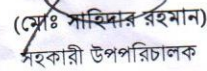 (মোঃ মাহিদার রহমান)
সহকারী উপপরিচালক